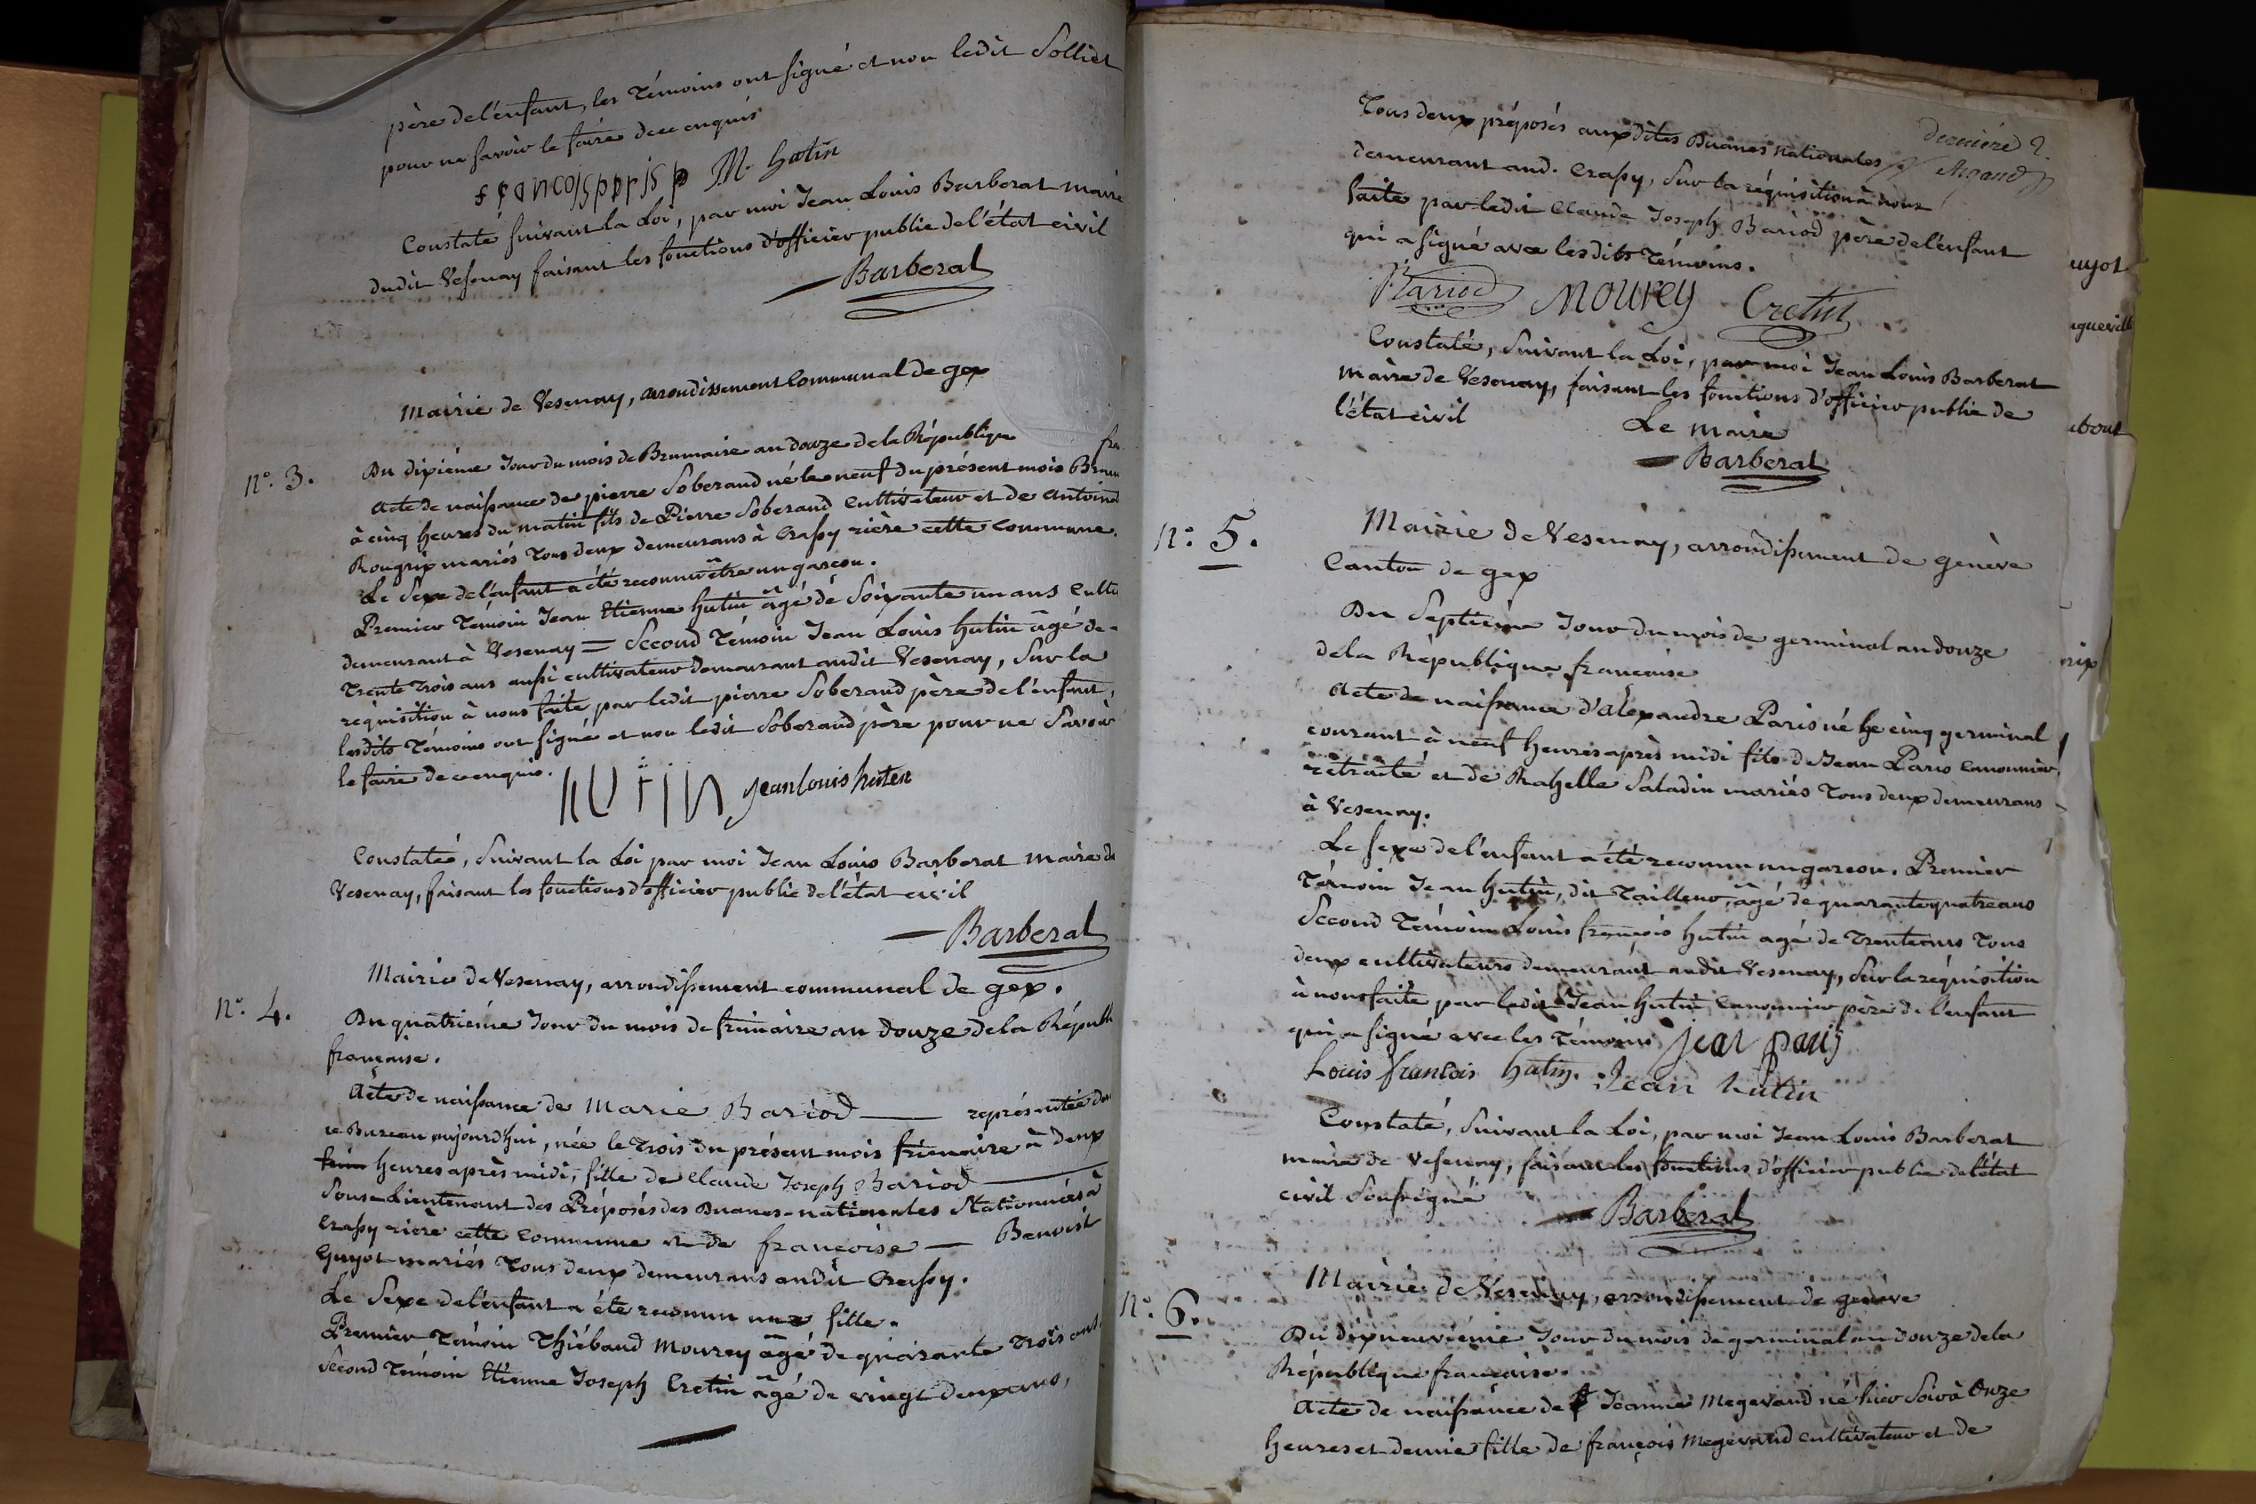 père de l'enfant, les Témoins ont signé et non ledit Solliet
pour ne savoir le faire de ce enquis
M. hutin
Constaté suivant la Loi, par moi Jean Louis Barberat maire
dudit Vesenay faisant les fonctions d'officier public de l'état civil
Barberat
Mairie de Vesenay, arrondissement Communal de gex
n°. 3.
Du dixiéme Jour du mois de Brumaire an douze de la République
Acte de naissance de pierre Soberand né le neuf du présent mois
à cinq heures du matin fils de Pierre Soberand Cultivateur et de
Rougrix mariés Tous deux demeurans à Crassy rière cette Commune.
Le Sexe de l'enfant a été reconnu être un garcon.
Premier Témoin Jean Etienne hutin âgé de Soixante un ans
demeurant à Vesenay = Second Témoin Jean Louis hutin âgé de
Trente trois ans aussi cultivateur demeurant audit Vesenay, Sur la
réquisition à nous faite par ledit pierre Soberand père de l'enfant,
lesdits Témoins ont signé et non ledit Soberand père pour ne Savoir
le faire de ce enquis.
hutin Jean louis huten
Constaté, Suivant la Loi par moi Jean Louis Barberat Maire de
Vesenay, faisant les fonctions d'officier public de l'état civil
Barberat
Mairie de Vesenay, arrondissement communal de gex.
n°. 4.
Du quatriéme Jour du mois de frimaire an douze de la Républ
française.
Acte de naissance de Marie Bariod représentée
ce Bureau aujourd'hui, née le trois du présent mois frimaire à deux
heures après midi, fille de Claude Joseph Bariod
Sous-Lieutenant des Préposés des Duanes-nationales Stationnées à
Crassy rière cette Commune et de françoise Benoist
Guyot mariés Tous deux demeurans audit Crassy.
Le Sexe de l'enfant a été reconnu une fille.
Premier Témoin Thiébaud Mourey âgé de quarante trois ans
Second Témoin Etienne Joseph Cretin âgé de vingt deux ans,
Tous deux préposés auxdites Duanes nationales
demeurant aud. Crassy, Sur la réquisition à nous
faite par ledit Claude Joseph Bariod père de l'enfant
qui a signé avec lesdits Témoins.
Bariod Mourey Cretin
Constaté, Suivant la Loi, par moi Jean Louis Barberat
Maire de Vesenay, faisant les fonctions d'officier public de
l'état civil
Le Maire
Barberat
n°. 5.
Mairie de Vesenay, arrondissement de genève
Canton de gex
Du Septième Jour du mois de germinal an douze
de la République francaise
Acte de naissance d'alexandre Paris né le cinq germinal
courant à neuf heures après midi fils de Jean Paris Canonnier,
retraité et de Rahelle Saladin mariés Tous deux demeurans
à Vesenay.
Le Sexe de l'enfant a été reconnu un garcon. Premier
Témoin Jean hutin, dit Tailleur, âgé de quarante quatre ans
Second Témoin Louis françois hutin agé de Trente ans Tous
deux cultivateurs demeurant audit Vesenay, Sur la réquisition
à nous faite par ledit Jean hutin Canonnier père de l'enfant
qui a signé avec les Témoins Jean paris
Louis francois hutin. Jean hutin
Constaté, Suivant la Loi, par moi Jean Louis Barberat
maire de Vesenay, faisant les fonctions d'officier public de l'état
civil Soussigné
Barberat
n°. 6.
Mairie de Vesenay, arrondissement de genève
Du dixneuviéme Jour du mois de germinal an douze de la
République française.
Acte de naissance de Jeanne Megevand né hier Soir à Onze
heures et demie fille de françois Megevand cultivateur et de